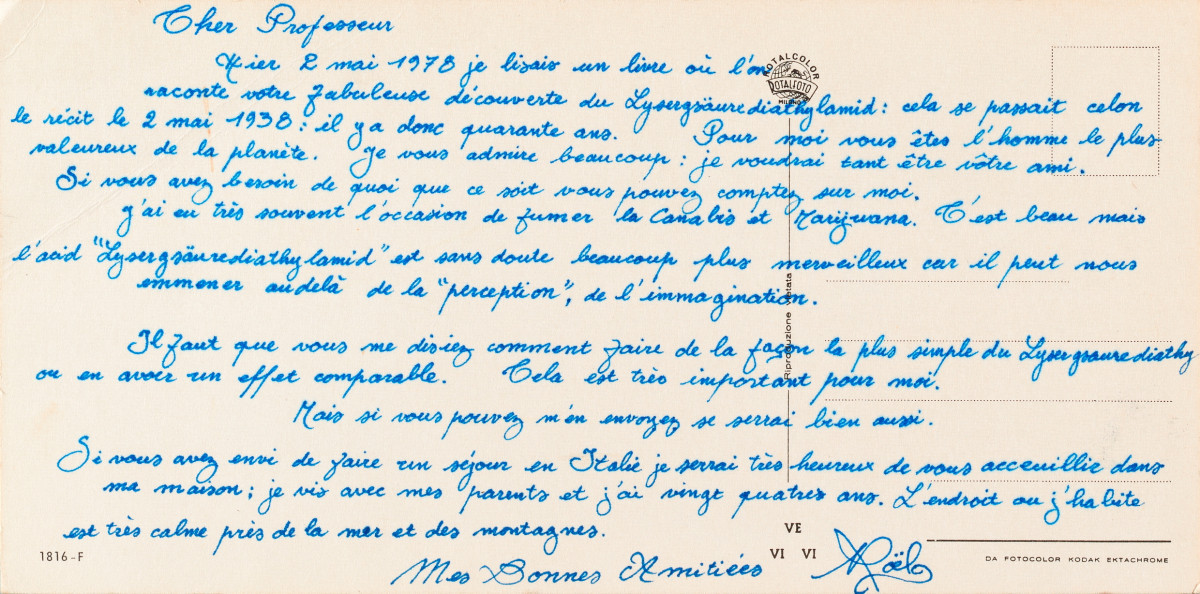 Cher Professeur
Hier 2 mai 1978 je lisais un livre où l'on
raconte votre fabuleuse découverte du Lysergsäurediathylamid : cela se passait celon
le récit le 2 mai 1938 : il y a donc quarante ans. Pour moi vous êtes l'homme le plus
valeureux de la planète. Je vous admire beaucoup : je voudrai tant être vôtre ami.
Si vous avez besoin de quoi que ce soit vous pouvez comptez sur moi.
j'ai eu très souvent l'occasion de fumer la Canabis et Marijuana. C'est beau mais
l'acid "Lysergsäurediathylamid" est sans doute beaucoup plus merveilleux car il peut nous
emmener audelà de la "perception", de l'immagination.
Il faut que vous me disiez comment faire de la façon la plus simple du Lysergsaurediathy
ou en avoir un effet comparable. Cela est très important pour moi.
Mais si vous pouvez m'en envoyez se serrai bien aussi.
Si vous avez envi de faire un séjour en Italie je serrai très heureux de vous acceuillir dans
ma maison ; je vis avec mes parents et j'ai vingt quatres ans. L'endroit ou j'habite
est très calme près de la mer et des montagnes.
Mes Bonnes Amitiées Noël
ROTALCOLOR
ROTALFOTO
MILANO
Riproduzione vietata
1816-F
VE
VI VI
DA FOTOCOLOR KODAK EKTACHROME